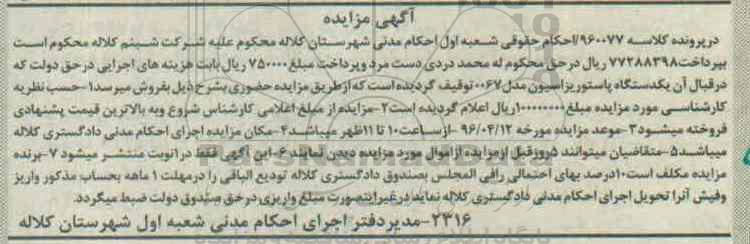 آگهی مزایده
درپرونده کلاسه ۹۶۰۰۷۷/احکام حقوقی شعبه اول احکام مدنی شهرستان کلاله محکوم علیه شرکت شبنم کلاله محکوم است
بپرداخت۷۷۲۸۸۳۹۸ ریال درحق محکوم له محمد دردی دست مرد وپرداخت مبلغ ۷۵۰۰۰۰ ریال بابت هزینه های اجرایی درحق دولت که
درقبال آن یکدستگاه پاستوریزاسیون مدل۰۰۶۷توقیف گردیده است که ازطریق مزایده حضوری بشرح ذیل بفروش میرسد۱-حسب نظریه
کارشناسی مورد مزایده مبلغ۱۰۰۰۰۰۰۰۰ریال اعلام گردیده است۲-مزایده از مبلغ اعلامی کارشناس شروع وبه بالاترین قیمت پشنهادی
فروخته میشود۳-موعد مزایده مورخه ۹۶/۰۴/۱۲ -ازساعت۱۰ تا ۱۱ظهر میباشد۴-مکان مزایده اجرای احکام مدنی دادگستری کلاله
میباشد۵-متقاضیان میتوانند ۵روزقبل ازمزایده ازاموال مورد مزایده دیدن نمایند۶-این آگهی فقط در۱نوبت منتشر میشود ۷-برنده
مزایده مکلف است۱۰درصد بهای احتمالی رافی المجلس بصندوق دادگستری کلاله تودیع الباقی را درمهلت ۱ ماهه بحساب مذکور واریز
وفیش آنرا تحویل اجرای احکام مدنی دادگستری کلاله نماید درغیراینصورت مبلغ واریزی درحق صندوق دولت ضبط میگردد.
۲۳۱۶-مدیردفتر اجرای احکام مدنی شعبه اول شهرستان کلاله